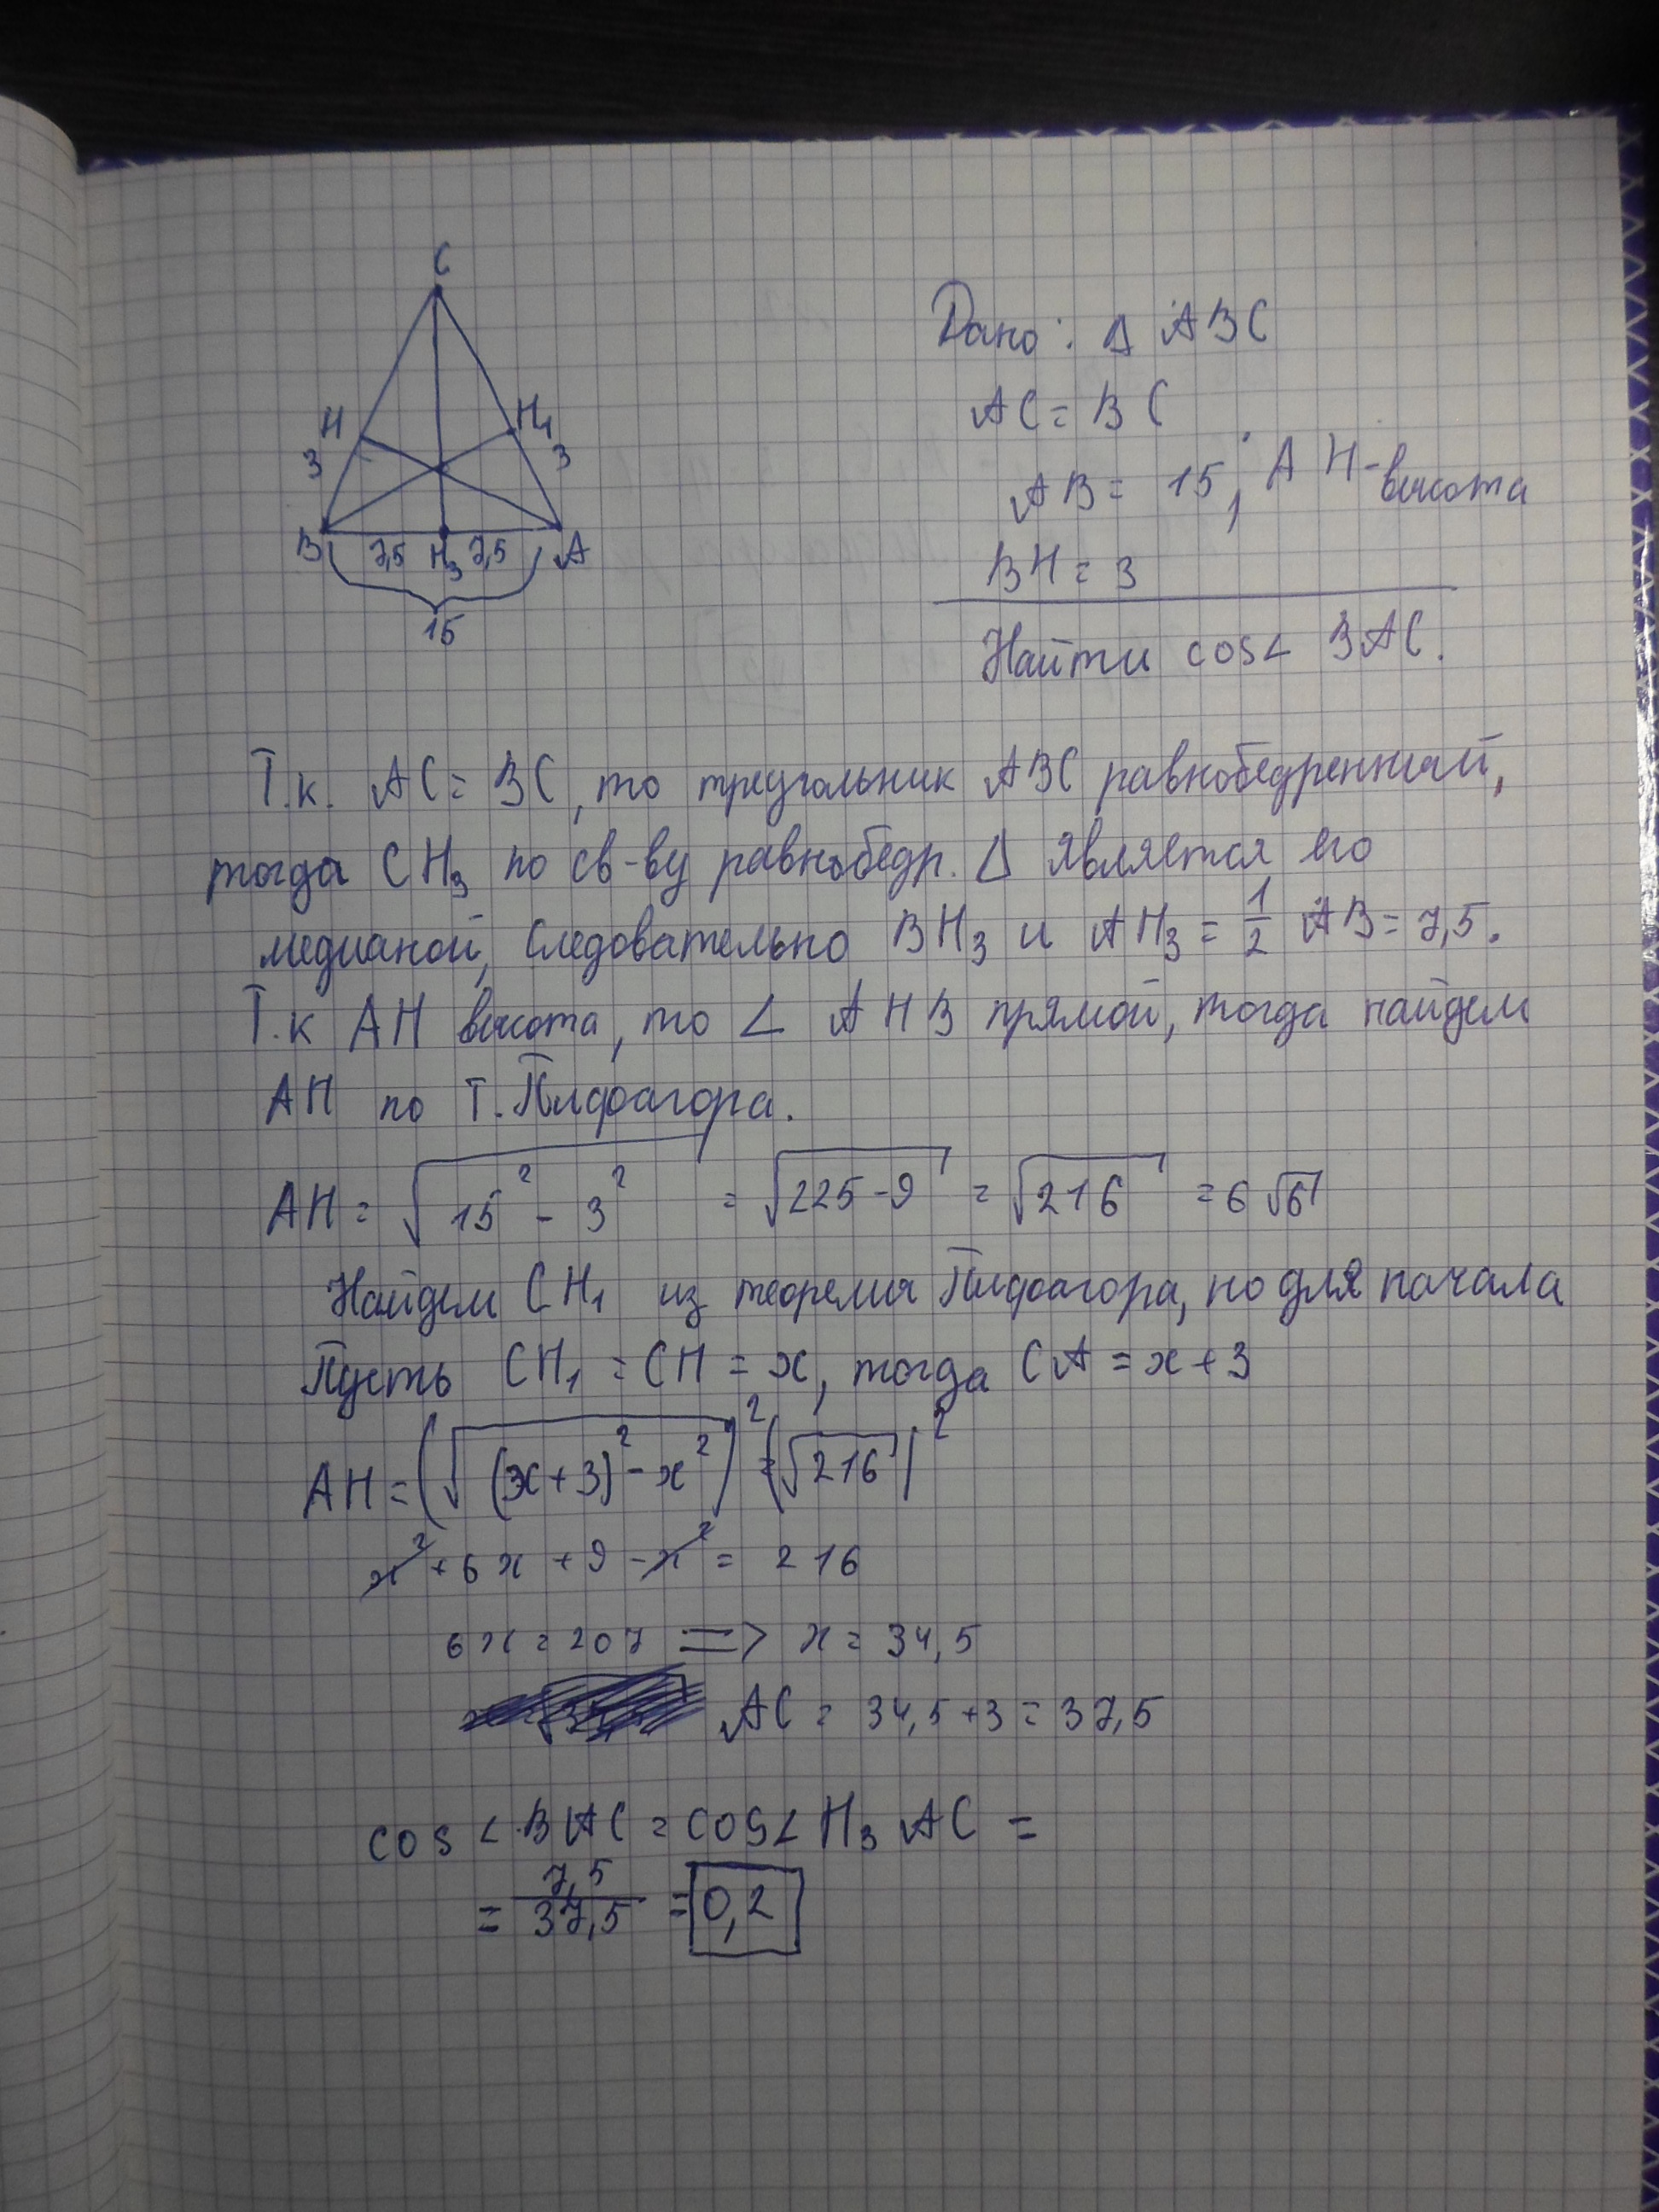 C
H
H₁
3
3
B 7,5 H₃ 7,5 A
15
Дано: Δ ABC
AC = BC
AB = 15; AH - высота
BH = 3
Найти cos∠ BAC.
Т.к. AC = BC, то треугольник ABC равнобедренный,
тогда CH₃ по св-ву равнобедр. Δ является его
медианой, следовательно BH₃ и AH₃ = 1/2 AB = 7,5.
Т.к AH высота, то ∠ AHB прямой, тогда найдем
AH по Т. Пифагора.
AH = √(15² - 3²) = √(225 - 9) = √216 = 6√6
Найдем CH₁ из теоремы Пифагора, но для начала
Пусть CH₁ = CH = x, тогда CA = x + 3
AH = (√((x+3)² - x²))² = (√216)²
x² + 6x + 9 - x² = 216
6x = 207 => x = 34,5
AC = 34,5 + 3 = 37,5
cos ∠ BAC = cos∠ H₃ AC =
= 7,5/37,5 = 0,2